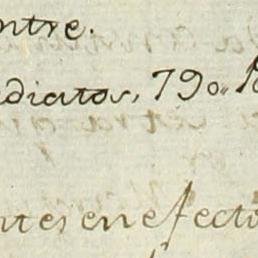 ntre.
diatos, 790,,
ntes en efecti